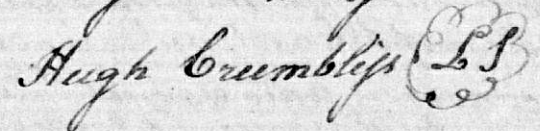 Hugh Crumbliſs LS